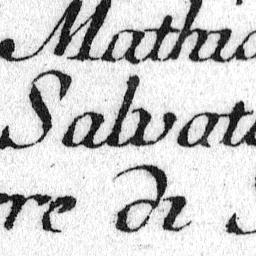 Mathia
Salvat
re di S